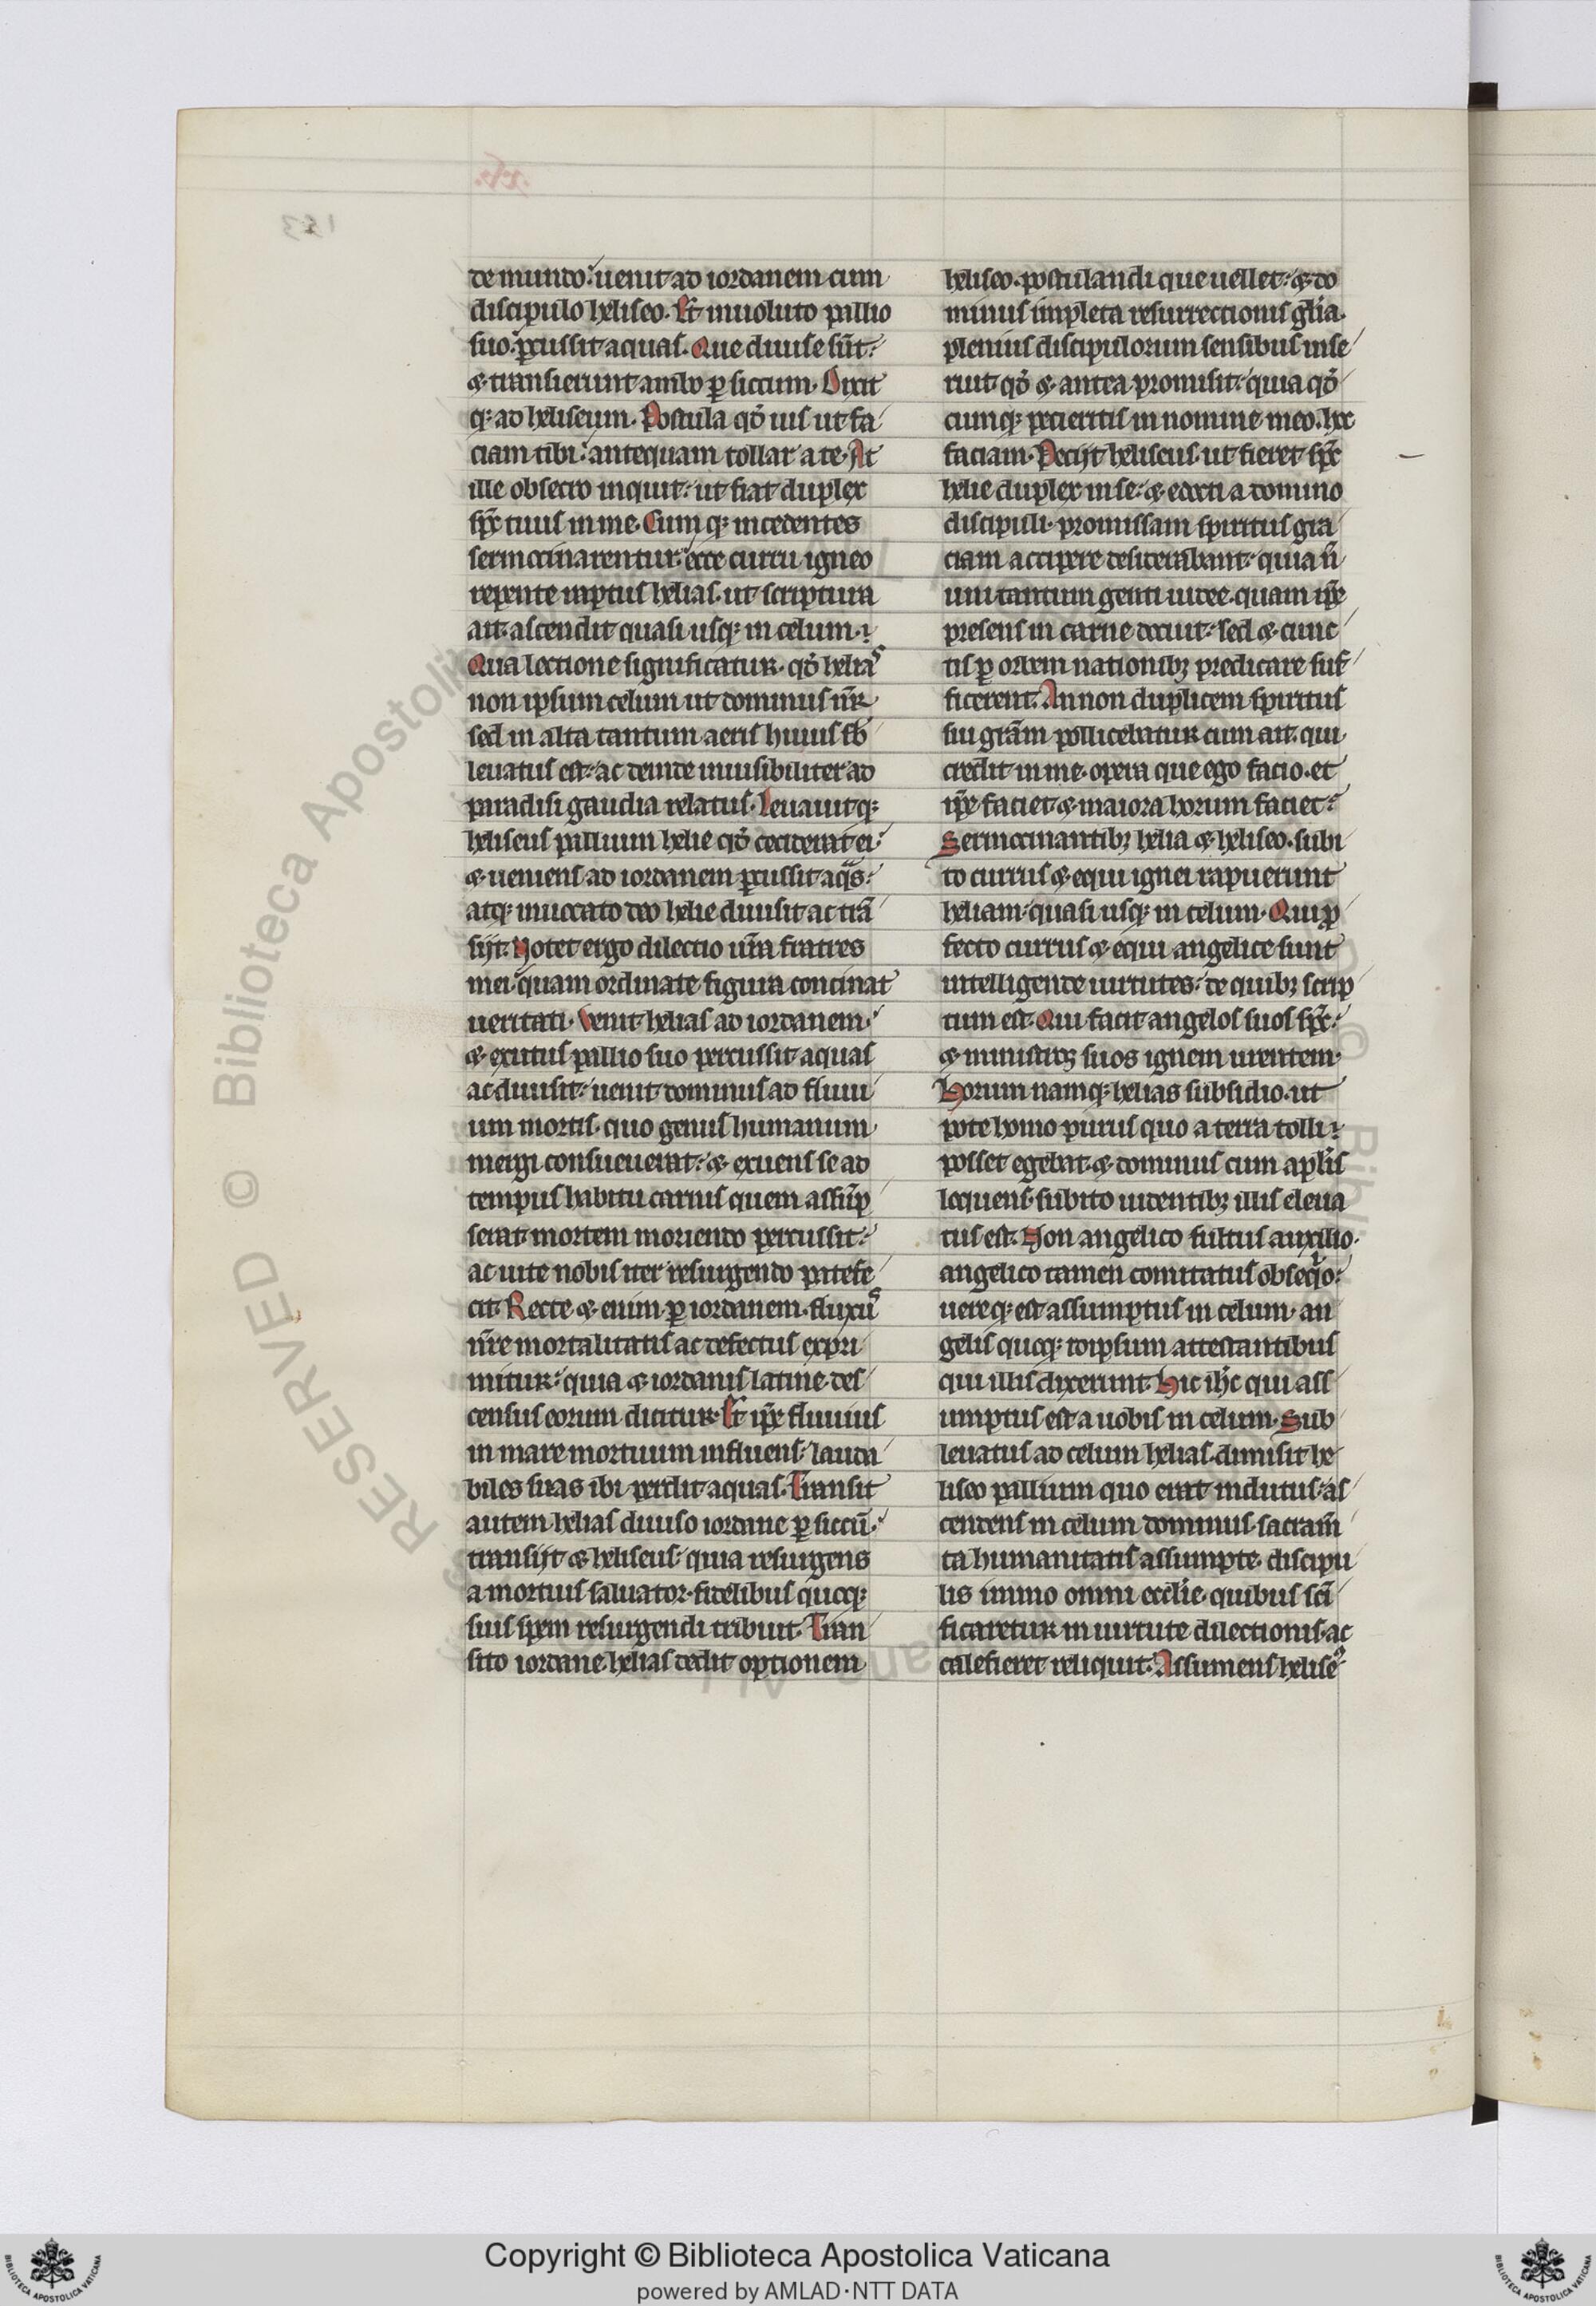 de mundo: uenit ad iordanem cum
discipulo heliseo. Et inuoluto pallio
suo. ꝑcussit aquas. Que diuise sūt:
⁊ transierunt ambo ꝑ siccum. Dixit
qꝫ ad heliseum. Postula qđ uis ut fa
ciam tibi: antequam tollar a te. At
ille obsecro inquit: ut fiat duplex
sp̄c tuus in me. Cum qꝫ incedentes
sermocinarentur: ecce curru igneo
repente raptus helias. ut scriptura
ait. ascendit quasi usqꝫ in celum.
Qua lectione significatur. qđ helias
non ipsum celum ut dominus nr̄.
sed in alta tantum aeris huius sb̄
leuatus est: ac deinde inuisibiliter ad
paradisi gaudia relatus. Leuauitqꝫ
heliseus pallium helie qđ ceciderat ei:
⁊ ueniens ad iordanem ꝑcussit aqͣs:
atqꝫ inuocato deo helie diuisit ac trā
sijt. Notet ergo dilectio ur̄a fratres
mei. quam ordinate figura concinat
ueritati. Venit helias ad iordanem:
⁊ exutus pallio suo percussit aquas
ac diuisit: uenit dominus ad fluui
um mortis. quo genus humanum
mergi consueuerat: ⁊ exuens se ad
tempus habitu carnis quem assūp
serat mortem moriendo percussit:
ac uite nobis iter resurgendo patefe
cit. Recte ⁊ enim ꝑ iordanem. fluxus
nr̄e mortalitatis ac defectus expri
mitur: quia ⁊ iordanis latine des
census eorum dicitur. Et ip̄e fluuius
in mare mortuum influens. lauda
biles suas ibi perdit aquas. Transit
autem helias diuiso iordane ꝑ siccū:
transijt ⁊ heliseus: quia resurgens
a mortuis saluator. fidelibus quoqꝫ
suis spem resurgendi tribuit. Tran
sito iordane. helias dedit optionem
heliseo. postulandi que uellet: ⁊ do
minus impleta resurrectionis gl̄ia.
plenius discipulorum sensibus inse
ruit qđ ⁊ antea promisit: quia qđ
cumqꝫ petieritis in nomine meo. hoc
faciam. Petijt heliseus. ut fieret sp̄c
helie duplex in se: ⁊ edocti a domino
discipuli. promissam spiritus gra
ciam accipere desiderabant: quia n̄
uni tantum genti iudee. quam ip̄e
presens in carne docuit: sed ⁊ cunc
tis ꝑ orbem nationibꝫ predicare suf
ficerent. An non duplicem spiritus
sui grām pollicebatur cum ait. qui
credit in me. opera que ego facio. et
ip̄e faciet ⁊ maiora horum faciet:
Sermocinantibꝫ helia ⁊ heliseo. subi
to currus ⁊ equi ignei rapuerunt
heliam. quasi usqꝫ in celum. Qui ꝓ
fecto currus ⁊ equi angelice sunt
intelligende uirtutes: de quibꝫ scrip
tum est. Qui facit angelos suos sp̄c:
⁊ ministros suos ignem urentem.
Horum namqꝫ helias subsidio. ut
pote homo purus quo a terra tolli
posset egebat. ⁊ dominus cum apl̄is
loquens. subito uidentibꝫ illis eleua
tus est. Non angelico fultus auxilio.
angelico tamen comitatus obseqͥo:
uereqꝫ est assumptus in celum. an
gelis quoqꝫ idipsum attestantibus
qui illis dixerunt. Hic ih̄c qui ass
umptus est a uobis in celum. Sub
leuatus ad celum helias. dimisit he
liseo pallium quo erat indutus. as
cendens in celum dominus. sacram̄
ta humanitatis assumpte. discipu
lis immo omni eccl̄ie. quibus sci
ficaretur in uirtute dilectionis. ac
calefieret reliquit. Assumens helise⁹
Copyright © Biblioteca Apostolica Vaticana
powered by AMLAD·NTT DATA